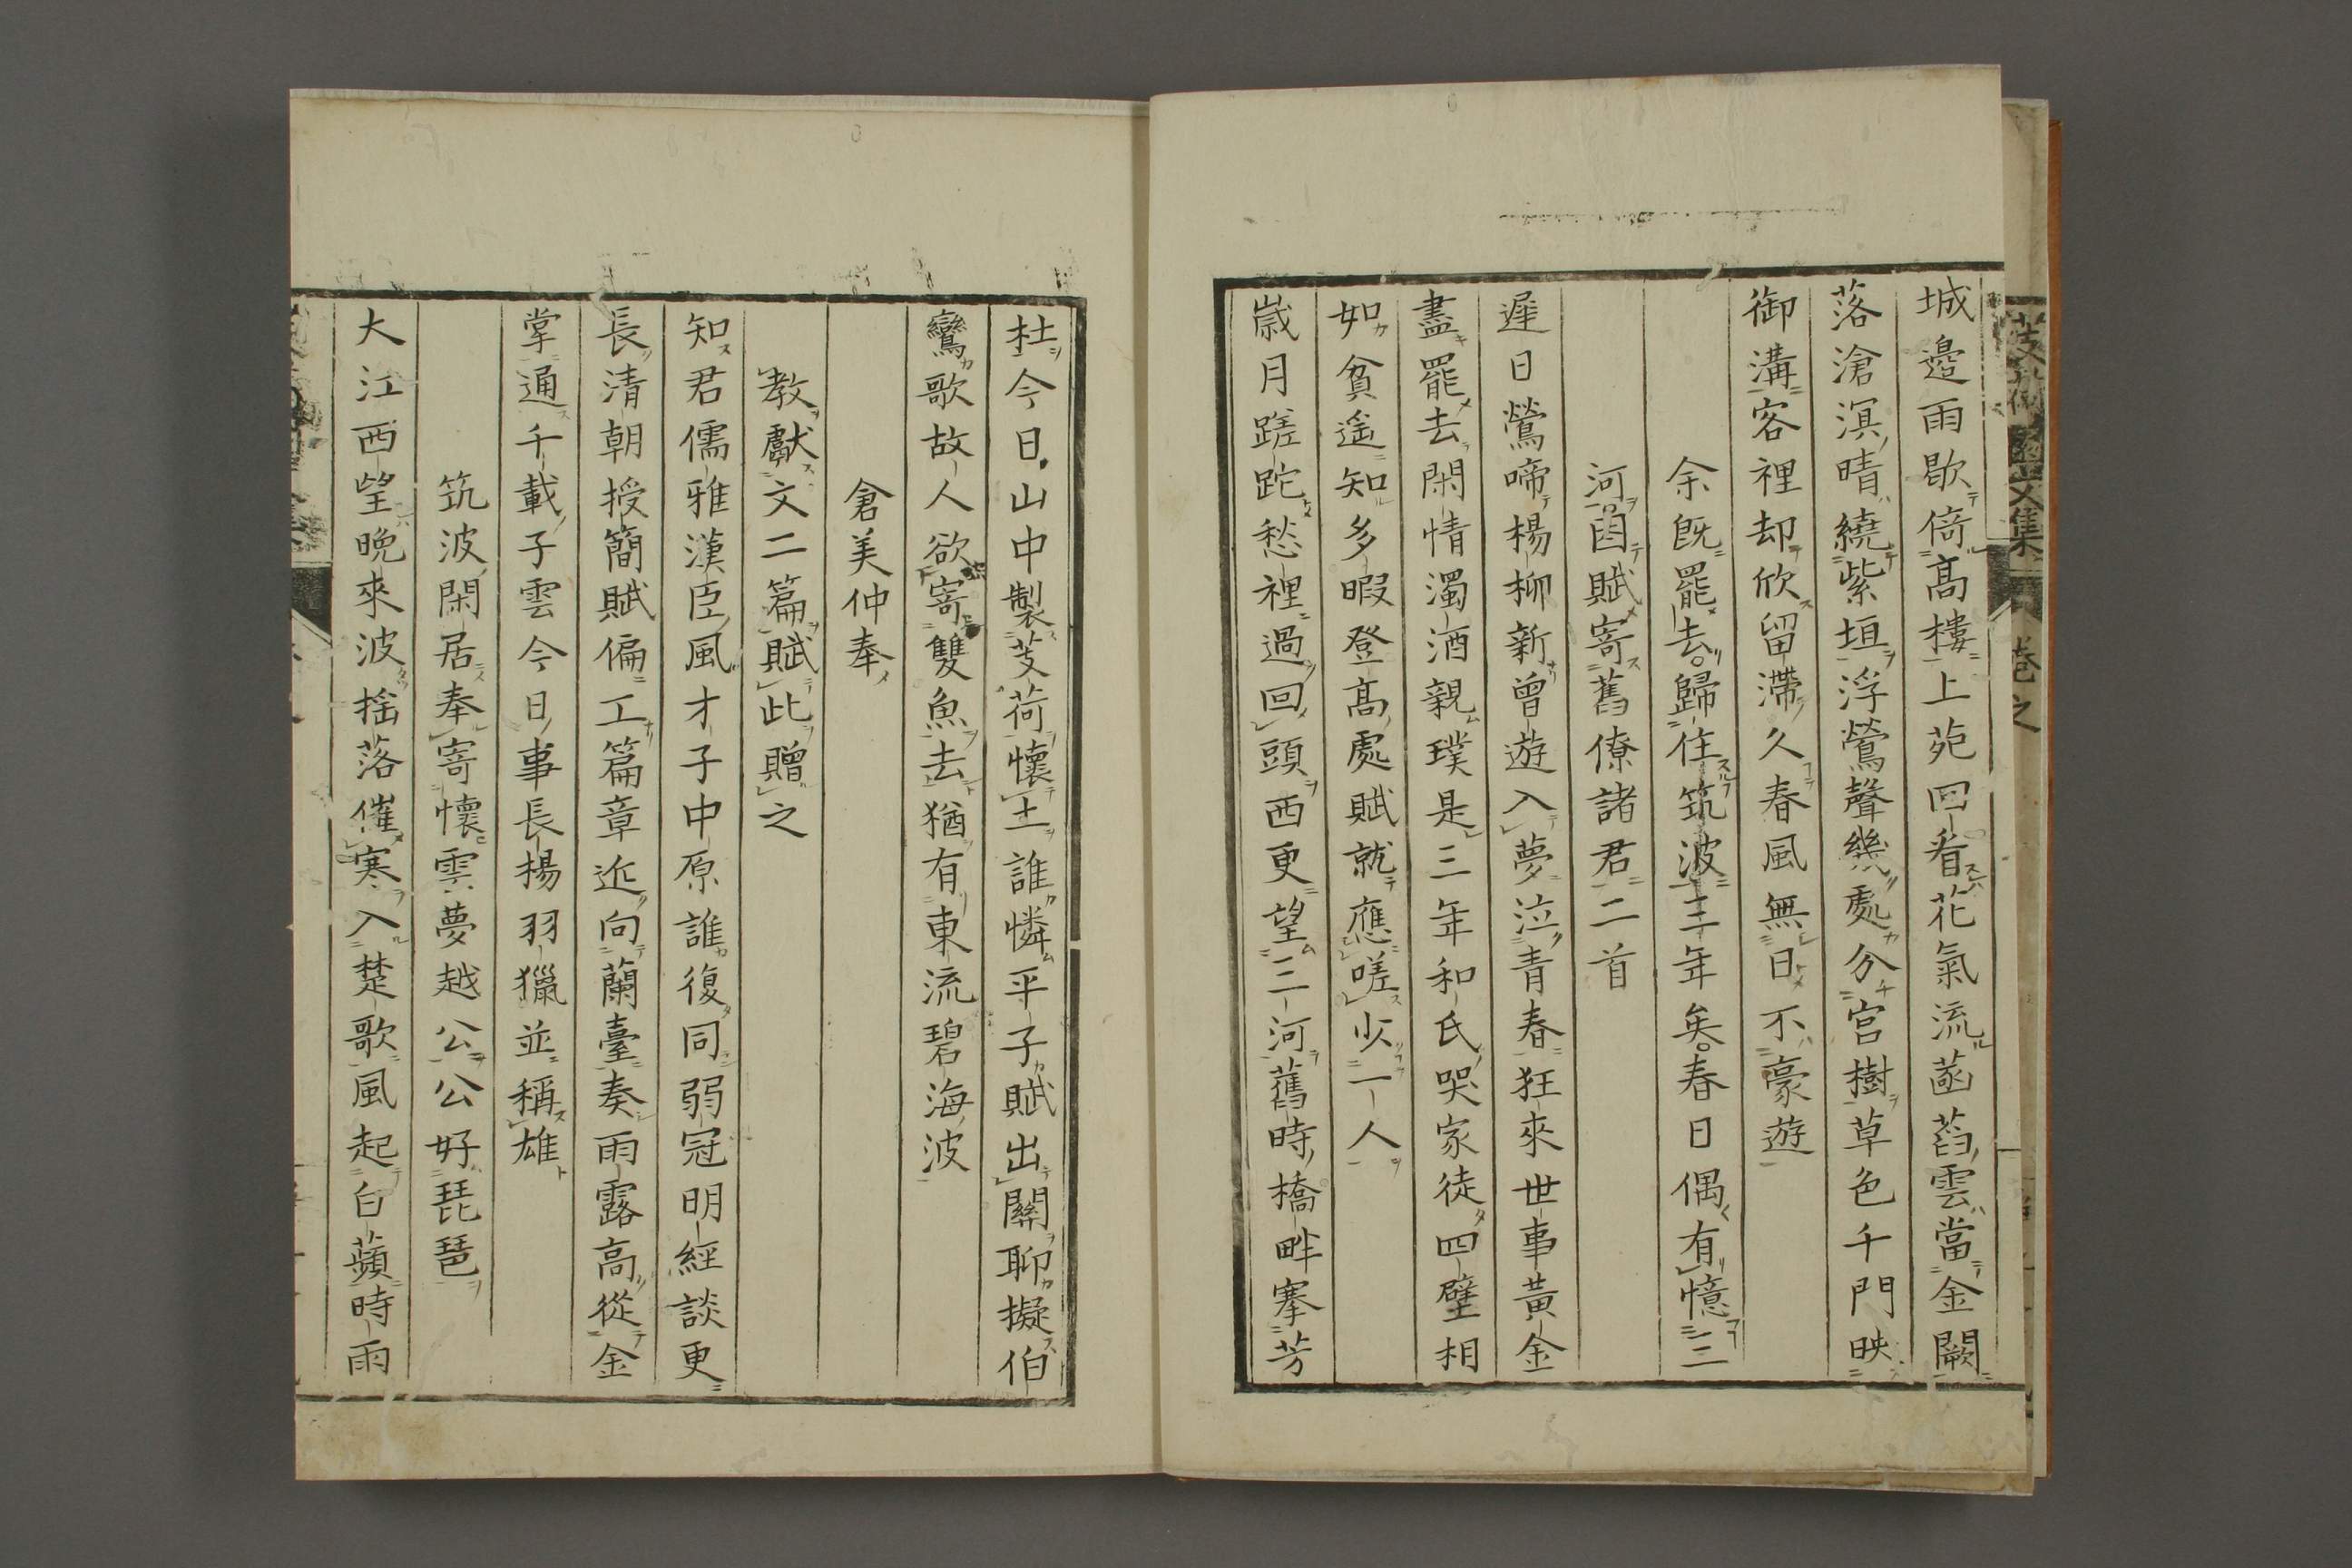 城邉雨歇倚髙樓上苑囘看花氣流菡萏雲當金闕
落滄溟晴繞紫垣浮鶯聲幾處分宮樹草色千門映
御溝客裡却欣留滯久春風無日不豪遊
余既罷去歸住筑波三年矣春日偶有憶三
河因賦寄舊僚諸君二首
遲日鶯啼楊柳新曾遊入夢泣青春狂來世事黃金
盡罷去閑情濁酒親璞是三年和氏哭家徒四壁相
如貧遥知多暇登髙處賦就應嗟少一人
歲月蹉跎愁裡過回頭西更望三河舊時橋畔搴芳
杜今日山中製芰荷懷土誰憐平子賦出關聊擬伯
鸞歌故人欲寄雙魚去猶有東流碧海波
倉美仲奉
教獻文二篇賦此贈之
知君儒雅漢臣風才子中原誰復同弱冠明經談更
長清朝授簡賦偏工篇章近向蘭臺奏雨露高從金
掌通千載子雲今日事長楊羽獵並稱雄
筑波閑居奉寄懷雲夢越公公好琵琶
大江西望晚來波搖落催寒入楚歌風起白蘋時雨